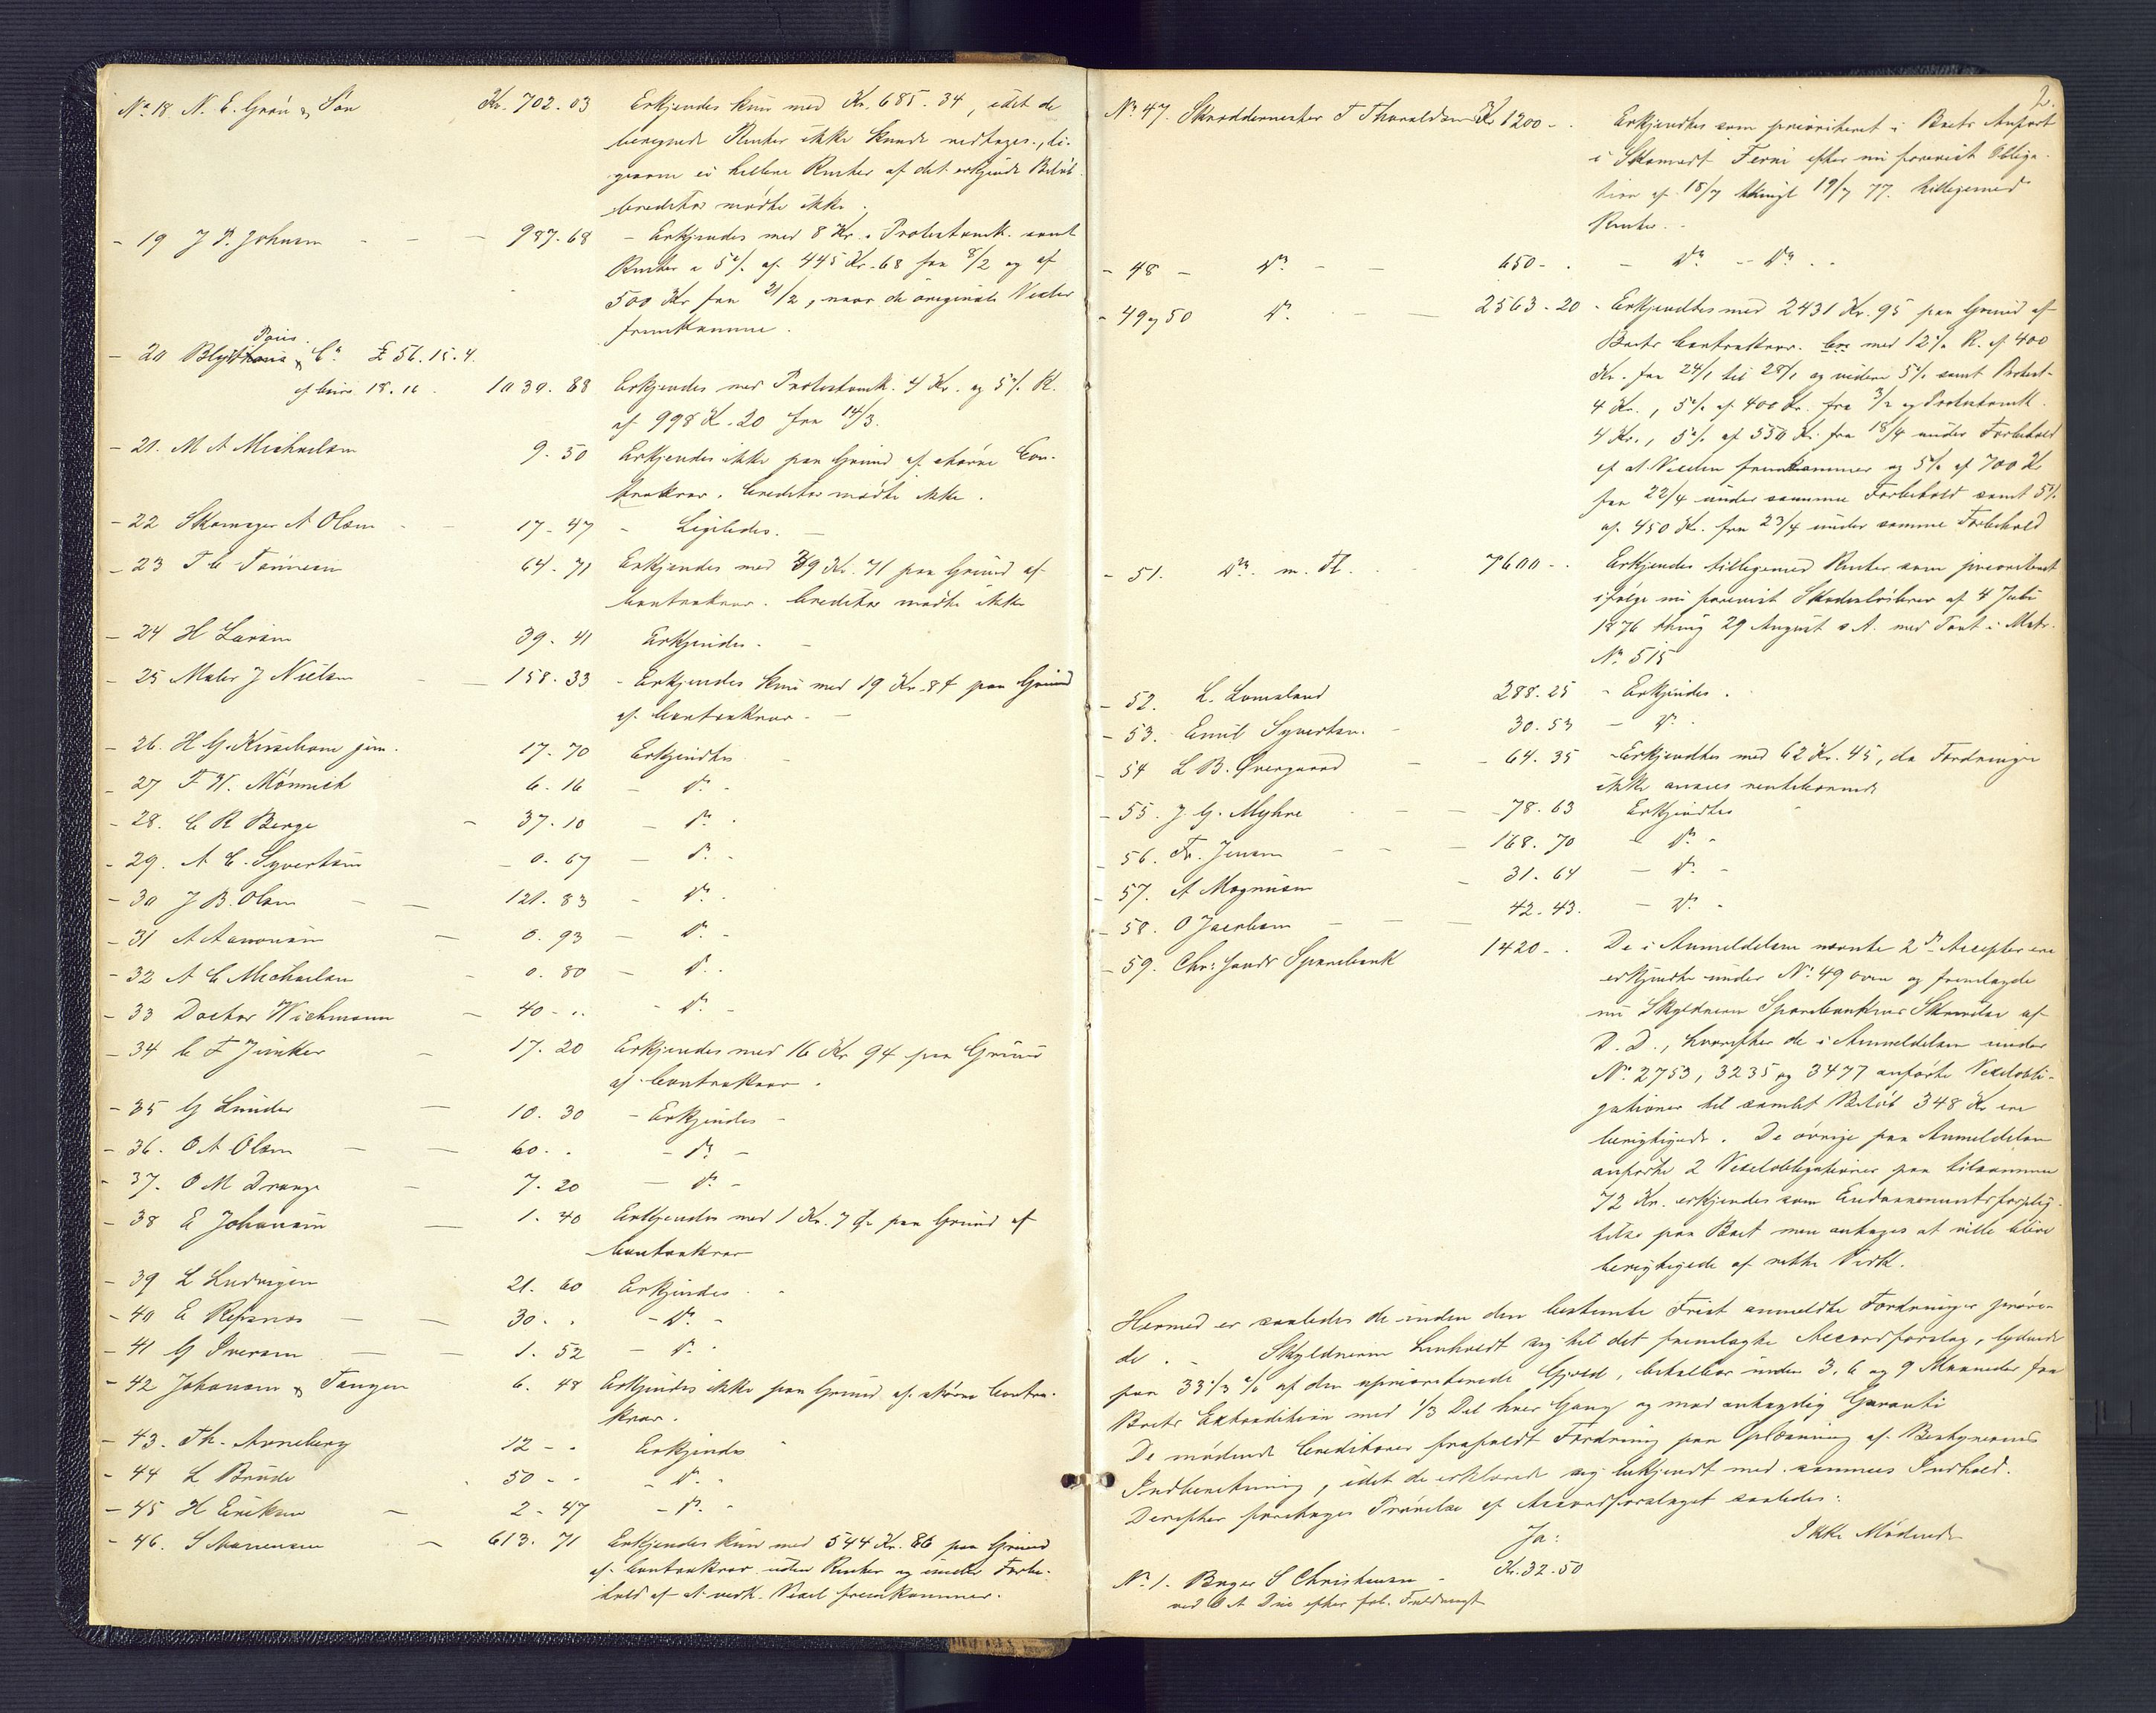 No 18. N. E. Grøn & Søn Kr. 702.03 Erkjendes kun med Kr. 685.34, idet de
beregnede Renter ikke kunde medtages, li-
gesom ei hellere Renter af det erkjendte Beløb.
Creditor mødte ikke.
- 19 J P. Johnsen - - 987.68 - Erkjendes med 8 Kr. i Protestomk. samt
Renter a 5% af 445 Kr. 68 fra 8/2 og af
500 Kr fra 21/2, naar de originale Vexler
fremkomme.
Pais
- 20 Blyth & Co £ 56.15.4.
af Cours 18.16. 1030.88 Erkjendes med Protestomk. 4 Kr. og 5% R.
af 998 K. 20 fra 14/3.
- 21. M A Michaelsen 9.50 Erkjendes ikke paa Grund af større Con-
trakrav. Creditor mødte ikke.
- 22 Skomager A Olsen - 17.47 - Ligeledes. -
- 23 T C Tønnesen 64.71 Erkjendes med 39 Kr. 71 paa Grund af
Contrakrav. Creditor mødte ikke
- 24 H Larsen 39.41 Erkjendes. -
- 25 Maler J Nielsen - 158.33 - Erkjendes kun med 19 Kr. 84 paa Grund
af Contrakrav. -
- 26. H G. Kirschow jun. 17.70 Erkjendtes -
- 27 F W. Mönnich 6.16 - Do -
- 28. C R Berge - 37.10 - Do .
- 29. A C. Syvertsen - 0.67 - Do -
- 30 J B. Olsen - - 121.83 - Do .
- 31 A Aanonsen - 0.93 - Do -
- 32 A C Michaelsen - 0.80 - Do .
- 33 Doctor Wichmann - 40 - . - Do -
- 34 C F Junker - 17.20 Erkjendes med 16 Kr 94 paa Grund
af Contrakrav.
- 35 G Lunder - 10.30 - Erkjendes -
- 36. O A Olsen - - 60. . - Do -
- 37. O M Drange - 7.20 - Do -
- 38 E Johansen - 1.40 Erkjendes med 1 Kr. 7 Ør paa Grund af
Contrakrav
- 39 L Ludvigsen 21.60 Erkjendes. -
- 40 E Repsnes - - 30. . - Do -
- 41 G Iversen - - 1.52 - Do .
- 42 Johansen & Tangen 6.48 Erkjendes ikke paa Grund af større Contra-
krav.
- 43. Th. Arneberg 12 - . Erkjendes -
- 44 L Brude . 50 - . - Do -
- 45 H Eriksen - 2.47 - Do -
- 46. S Mariensen - 613.71 Erkjendes kun med 544 Kr. 86 paa Grund
af Contrakrav uden Renter og under Forbe-
hold af at vedk. Vexel fremkommer.
2.
No 47. Skræddermester T Thoraldsen Kr 1200 - . Erkjendtes som prioriteret i Boets Anpart
i Skonnert Ferni efter nu forevist Obliga-
tion af 18/7 thingl 19/7 77. tillegemed
Renter. -
- 48 - Do - - 650 - . - Do - Do . .
- 49 og 50 Do . - 2563.20 - Erkjendtes med 2431 Kr. 95 paa Grund af
Boets Contrakrav. med 12% R. af 400
Kr. fra 24/1 til 28/1 og videre 5% samt Protest-
4 Kr., 5% af 400 Kr. fra 3/2 og Protestomk.
4 Kr., 5% af 550 Kr. fra 18/4 under Forbehold
af at Vexelen fremkommer og 5% af 700 Kr
fra 22/4 under samme Forbehold samt 5%
af 450 Kr. fra 23/4 under samme Forbehold
- 51. Do m. Fl. . 7600 - . Erkjendes tillegemed Renter som prioriteret
ifølge nu forevist Skadesløsbrev af 4 Juli
1876 thing 29 August s. A. med Pant i Matr.
No 515
- 52. L. Lomeland 288.25 - Erkjendes.
- 53. Emil Syvertsen. - 30.53 - Do .
- 54 L B. Øvergaard - - 64.35 - Erkjendtes med 62 Kr. 45, da Fordringen
ikke ansees rentebærende
- 55. J. G. Myhre - - 78.63 Erkjendtes -
- 56. Fr. Jensen - - - 168.70 - Do -
- 57. A Magnusen - 31.64 - Do -
- 58. O Jacobsen - - - 42.43. - Do -
- 59. Chr: sands Sparebank 1420 - . De i Anmeldelsen nævnte 2de Accepter ere
erkjendte under No 49 oven og fremlagde
nu Skyldneren Sparebankens Skrivelse af
D. D., hvorefter de i Anmeldelsen under
No 2753, 3235 og 3477 anførte Vexelobli-
gationer til samlet Beløb 348 Kr ere
berigtigede. De øvrige paa Anmeldelsen
anførte 2 Vexelobligationer paa tilsammen
72 Kr. erkjendes som Endossementsforplig-
telse paa Boet men antages at ville blive
berigtigede af rette Vedk.
Hermed er saaledes de inden den bestemte Frist anmeldte Fordringer prøve-
de. - Skyldneren henholdt sig til det fremlagte Accordforslag, lydende
paa 33 1/3 % af den uprioriterede Gjæld, betalbar inden 3, 6 og 9 Maaneder fra
Boets Extradition med 1/3 Del hver Gang og mod antagelig Garanti
De mødende Creditorer frafaldt Fordring paa Oplæsning af Bestyrerens
Indberetning, idet de erklærede sig bekjendt med sammes Indhold.
Derefter foretages Prøvelse af Accordforslaget saaledes:
Ja: Ikke Mødende
No 1. Bager S Christensen - Kr. 32.50
ved O A Due efter frl. Fuldmagt